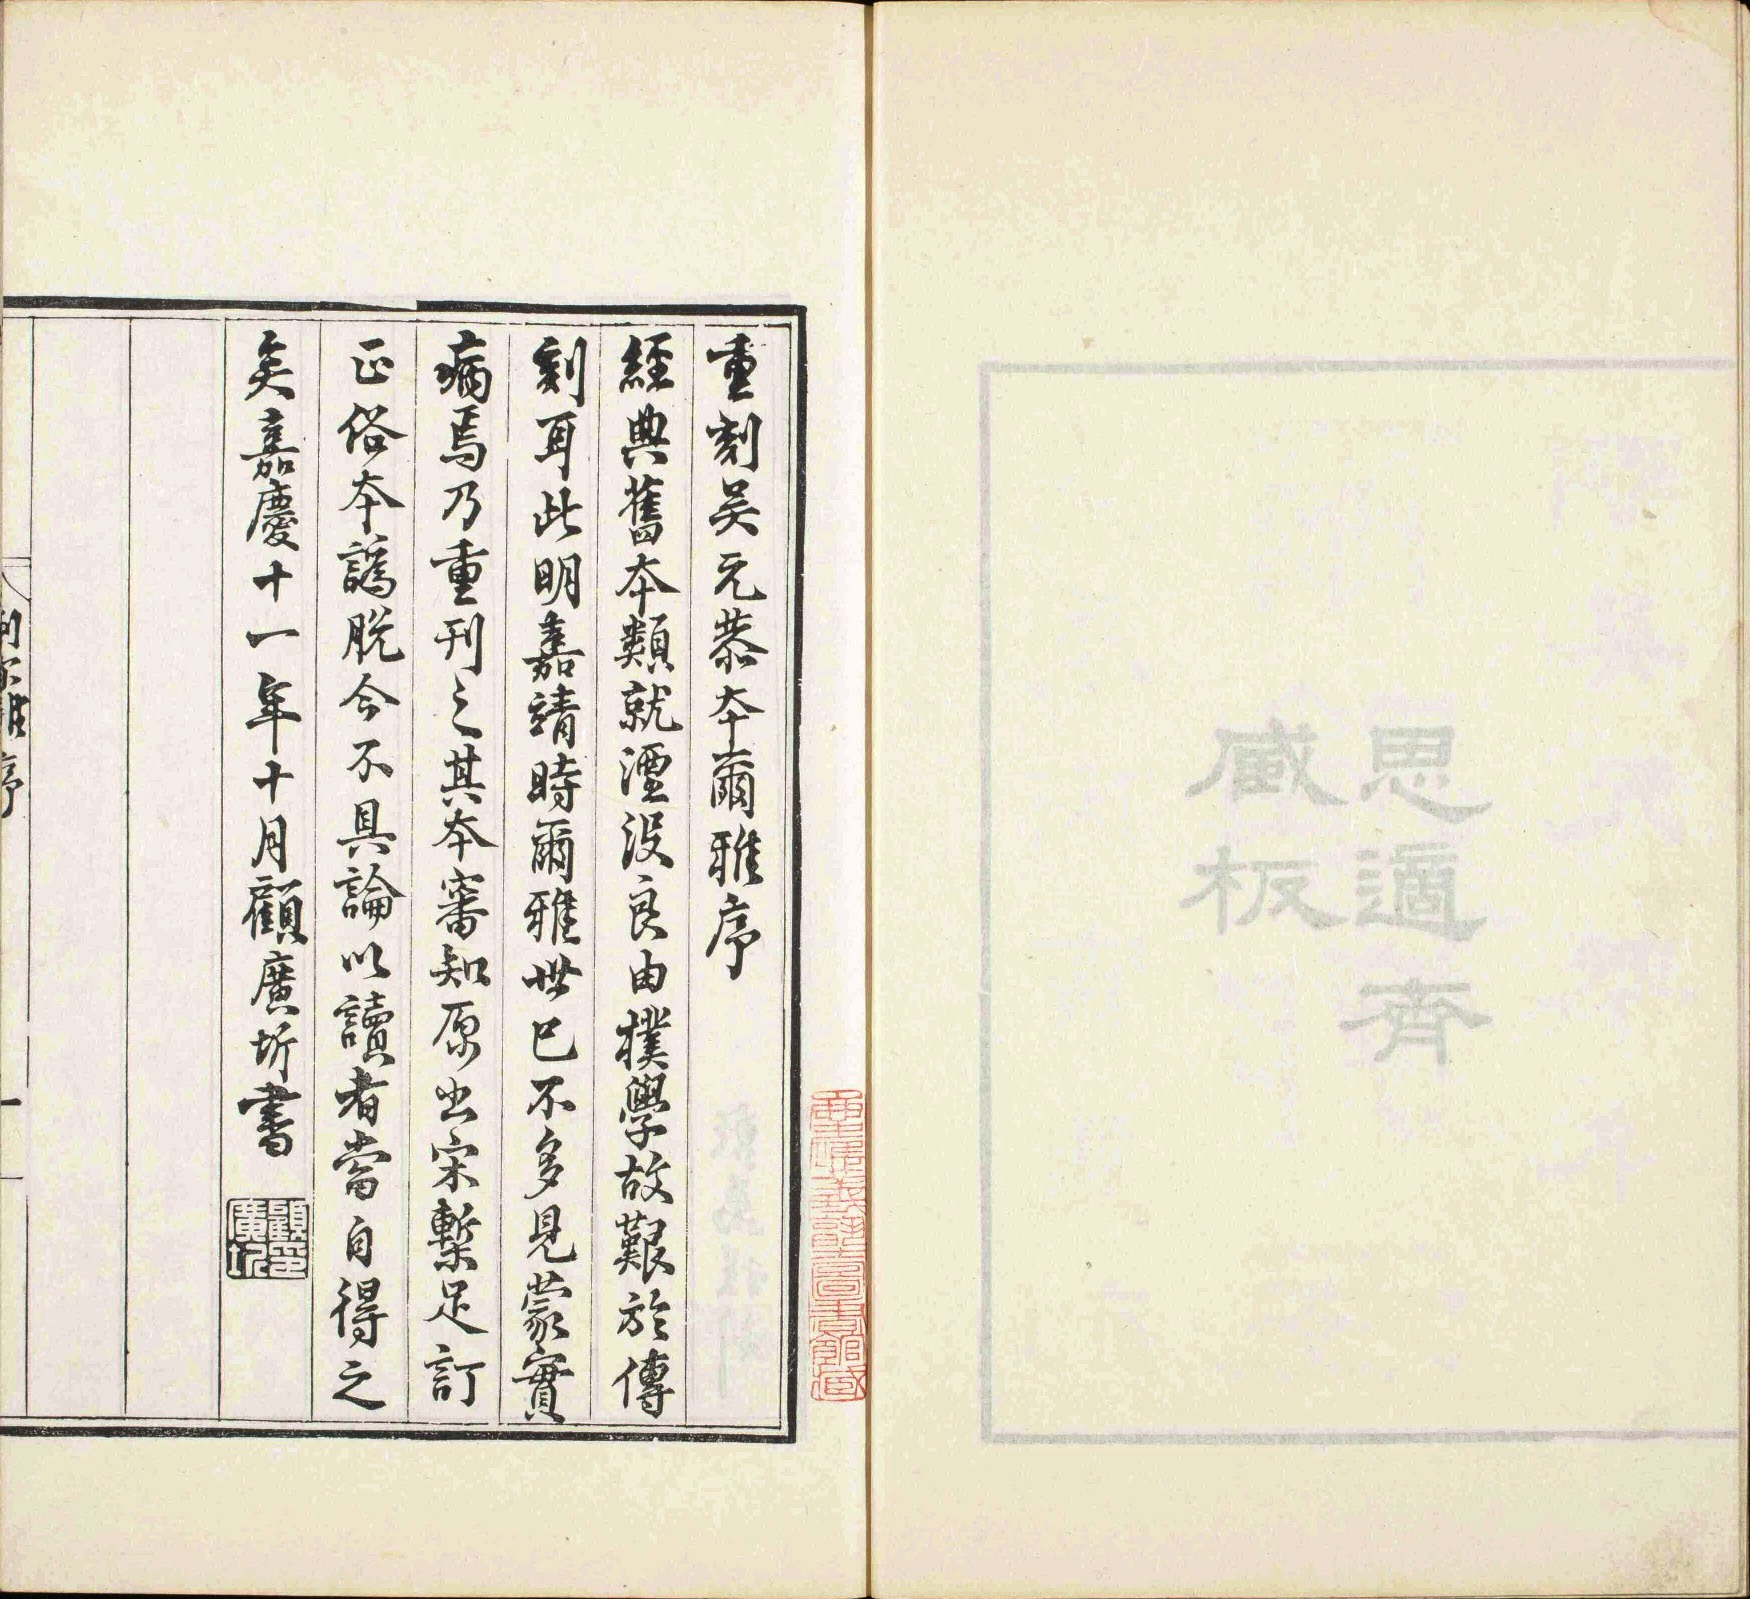 思適齋
藏板
重刻吳元恭本爾雅序
經典舊本類就湮沒良由樸學故艱於傳
刻耳此明嘉靖時爾雅世已不多見蒙實
病焉乃重刊之其本審知原出宋槧足訂
正俗本譌脫今不具論以讀者當自得之
矣嘉慶十一年十月顧廣圻書
顧印
廣圻
序
一